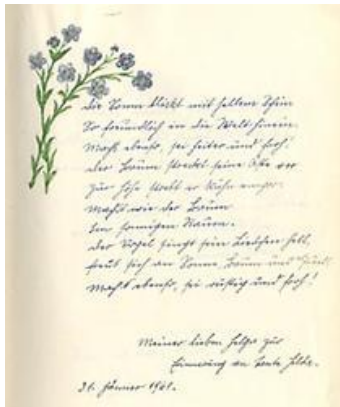 Die Sonne blickt mit hellem Schein
So freundlich in die Welt hinein.
Mach's ebenso, sei heiter und froh!
Der Baum streckt seine Äste vor
Zur Höhe strebt er kühn empor.
Mach's wie der Baum
Im sonnigen Raum.
Der Vogel singt sein Liedchen hell,
freut sich an Sonne, Baum und Quell.
Mach's ebenso, sei rüstig und froh!
Meiner lieben Helga zur
Erinnerung an Tante Hilde.
21. Jänner 1961.